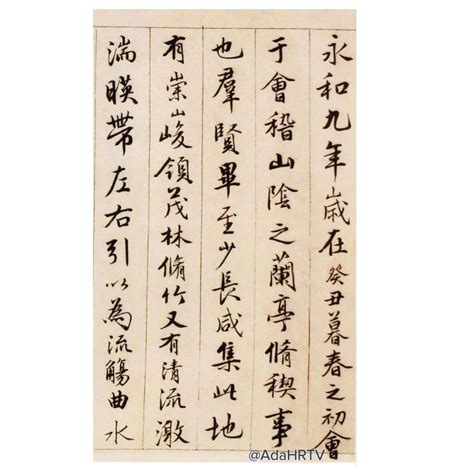 永和九年歲在癸丑暮春之初會
于會稽山陰之蘭亭脩稧事
也羣賢畢至少長咸集此地
有崇山峻領茂林脩竹又有清流激
湍暎帶左右引以為流觴曲水
@AdaHRTV